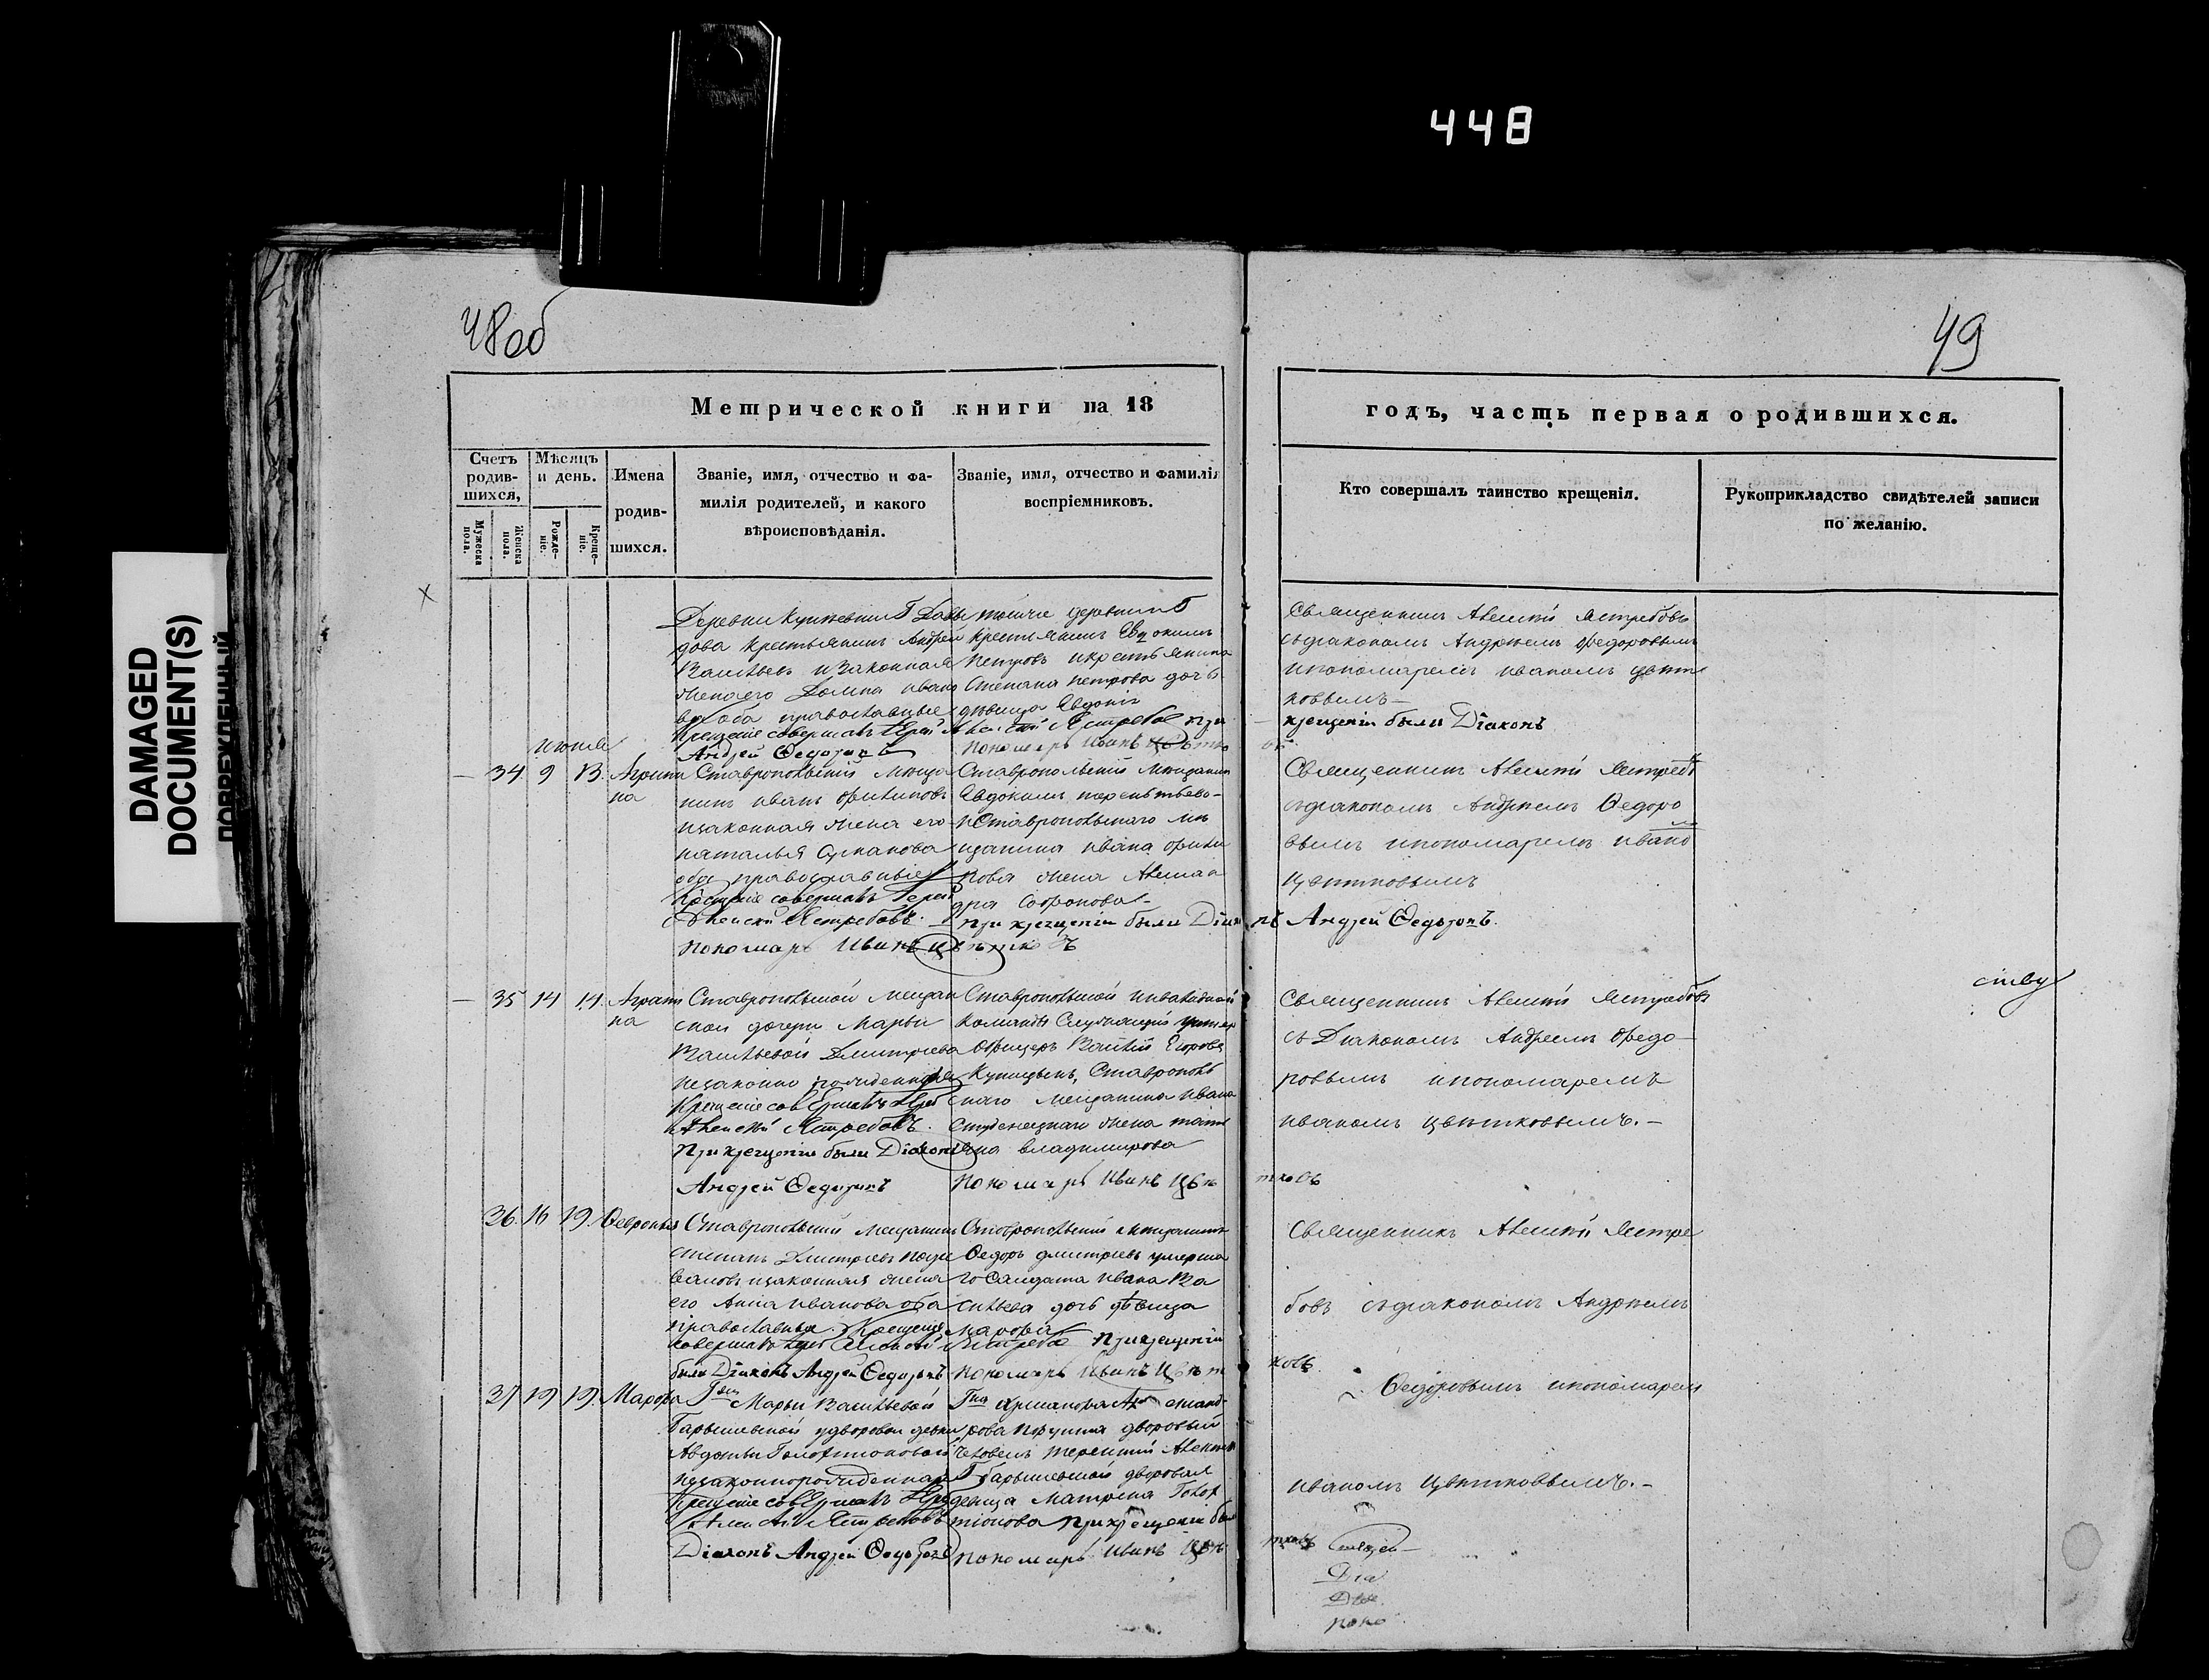 448
DAMAGED
DOCUMENT(S)
ПОВРЕЖДЕННЫЙ
48об
49
Метрической книги на 18
годъ, часть первая о родившихся.
Счетъ родив-шихся,
Мужеска пола.
Женска пола.
Мѣсяцъ и день.
Рожде-ніе.
Креще-ніе.
Имена родив-шихся.
Званіе, имя, отчество и фа-
милія родителей, и какого
вѣроисповѣданія.
Званіе, имя, отчество и фамилія
воспріемниковъ.
Кто совершалъ таинство крещенія.
Рукоприкладство свидѣтелей записи
по желанію.
Деревни
дова крестьянинъ Андрей
Васильевъ и законная
жена его Домна Ивано
ва оба православные
Крещеніе совершалъ Іерей Алексѣй Ястребов при
Андрей Ѳедоровъ
тойже деревни
крестьянинъ Евдокимъ
Петровъ и крестьянина
Степана Петрова дочь
дѣвица Евдокія
Пономарь Иванъ Цвѣтко
въ
Священникъ Алексѣй Ястребовъ
съ діакономъ Андреемъ Федоровымъ
и пономаремъ Иваномъ Цвѣт
ковымъ
крещеніи были Діаконъ
июня
34 9 13. Агрипи
на
Ставропольскій мѣща
нинъ Иванъ Филиповъ
и законная жена его
Наталья
оба православные
Крещеніе совершалъ Іерей
Алексѣй Ястребовъ.
Пономарь Иванъ Цвѣтковъ
Ставропольскій мѣщанинъ
Евдокимъ
и Ставропольскаго мѣ
щанина Ивана Фили
пова жена Алексан
дра Софронова
При крещеніи были Діаконъ Андрей Ѳедоровъ.
Священникъ Алексѣй Ястребовъ
съ діакономъ Андреемъ Ѳедоро
вымъ и пономаремъ Иваномъ
Цвѣтковымъ
35 14 14. Агрипи
на
Ставропольской мещан
ской дочери Марьи
Васильевой Дмитріева
незаконно рожденная
Крещеніе совершалъ Іерей
Алексѣй Ястребовъ.
При крещеніи были Діаконъ
Андрей Ѳедоровъ
Ставропольской инвалидной
команды Служащій унтеръ
Офицеръ Василій Егоровъ
Купцынъ, Ставрополь
скаго мещанина Ивана
жена Татья
на Владимирова
Пономарь Иванъ Цвѣ
тковъ
Священникъ Алексѣй Ястребовъ
съ Діакономъ Андреемъ Федо-
ровымъ и пономаремъ
Иваномъ Цвѣтковымъ.-
ству
36. 16 19. Ѳевронья
Ставропольскій мещанинъ
Степанъ Дмитріевъ
и законная жена
его Анна Иванова оба
православныя. Крещеніе
совершалъ Іерей Алексѣй Ястребов При крещеніи
были Діаконъ Андрей Ѳедоровъ
Ставропольскій мещанинъ
Ѳедоръ Дмитріевъ умерша
го Салдата Ивана Ва
сильева дочь дѣвица
Марфа
Пономарь Иванъ Цвѣт
ковъ.
Священникъ Алексѣй Ястре
бовъ съ діакономъ Андреемъ
Ѳедоровымъ и пономаремъ
Иваномъ Цвѣтковымъ.-
37 19 19. Марфа
Марьи Васильевой
Барышевской дворовой девки
Авдотьи
незаконнорожденная
Крещеніе совершалъ Іерей
Алексѣй Ястребовъ
Діаконъ Андрей Ѳедоровъ
дворовый
человекъ Терентий Алексѣевъ
Барышевской дворовая
девица Матрена
При крещеніи были
Пономарь Иванъ Цвѣ
тковъ
Діа
поно